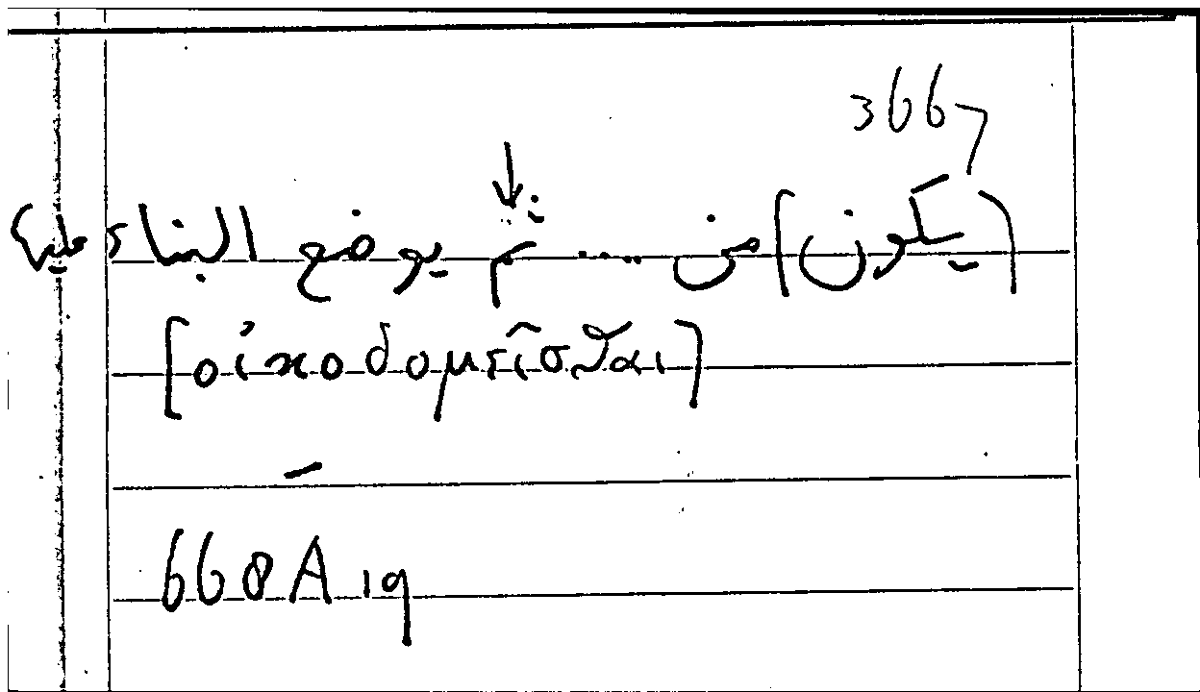 3667
(يكون) من .... ثم يوضع البناء عليها
[οἰκοδομεῖσθαι]
668A19